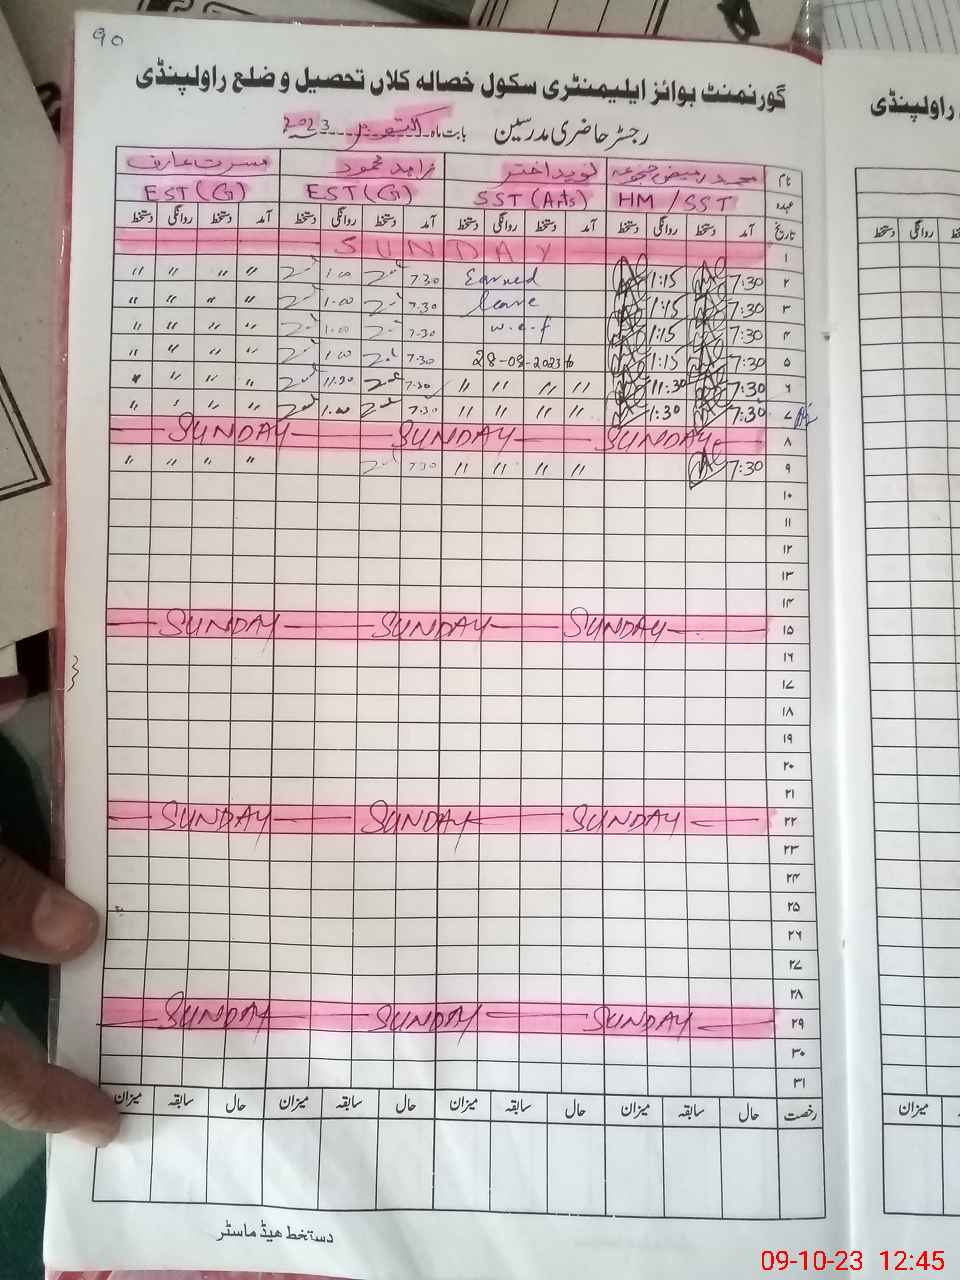 90
گورنمنٹ بوائز ایلیمنٹری سکول خصالہ کلاں تحصیل و ضلع راولپنڈی
رجسٹر حاضری مدرسین بابت ماہ اکتوبر 2023
نام محمد نوید اختر زاہد محمود مسرت عارف
عہدہ HM / SST SST (Arts) EST (G) EST (G)
تاریخ آمد دستخط روانگی دستخط آمد دستخط روانگی دستخط آمد دستخط روانگی دستخط آمد دستخط روانگی دستخط
۱ SUNDAY
۲ 7:30 1:15 Earned 7.30 1.00 〃 〃 〃 〃
۳ 7:30 1:15 leave 7.30 1.00 〃 〃 〃 〃
۴ 7:30 1:15 w.e.f 7.30 1.00 〃 〃 〃 〃
۵ 7:30 1:15 28-09-2023 to 7.30 1.00 〃 〃 〃 〃
۶ 7:30 11:30 〃 〃 〃 〃 7.30 11.30 〃 〃 〃 〃
۷ 7:30 1:30 〃 〃 〃 〃 7.30 1.00 〃 〃 〃 〃
۸ SUNDAY SUNDAY SUNDAY
۹ 7:30 〃 〃 〃 〃 7.30 〃 〃 〃 〃
۱۰
۱۱
۱۲
۱۳
۱۴
۱۵ SUNDAY SUNDAY SUNDAY
۱۶
۱۷
۱۸
۱۹
۲۰
۲۱
۲۲ SUNDAY SUNDAY SUNDAY
۲۳
۲۴
۲۵
۲۶
۲۷
۲۸
۲۹ SUNDAY SUNDAY SUNDAY
۳۰
۳۱
رخصت حال سابقہ میزان حال سابقہ میزان حال سابقہ میزان حال سابقہ میزان
دستخط ھیڈ ماسٹر
راولپنڈی
روانگی دستخط
میزان
09-10-23 12:45